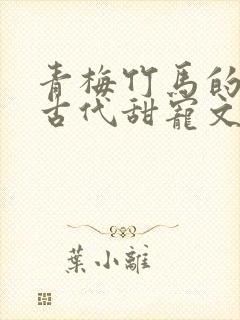 青梅竹馬的
古代甜寵文
葉小離